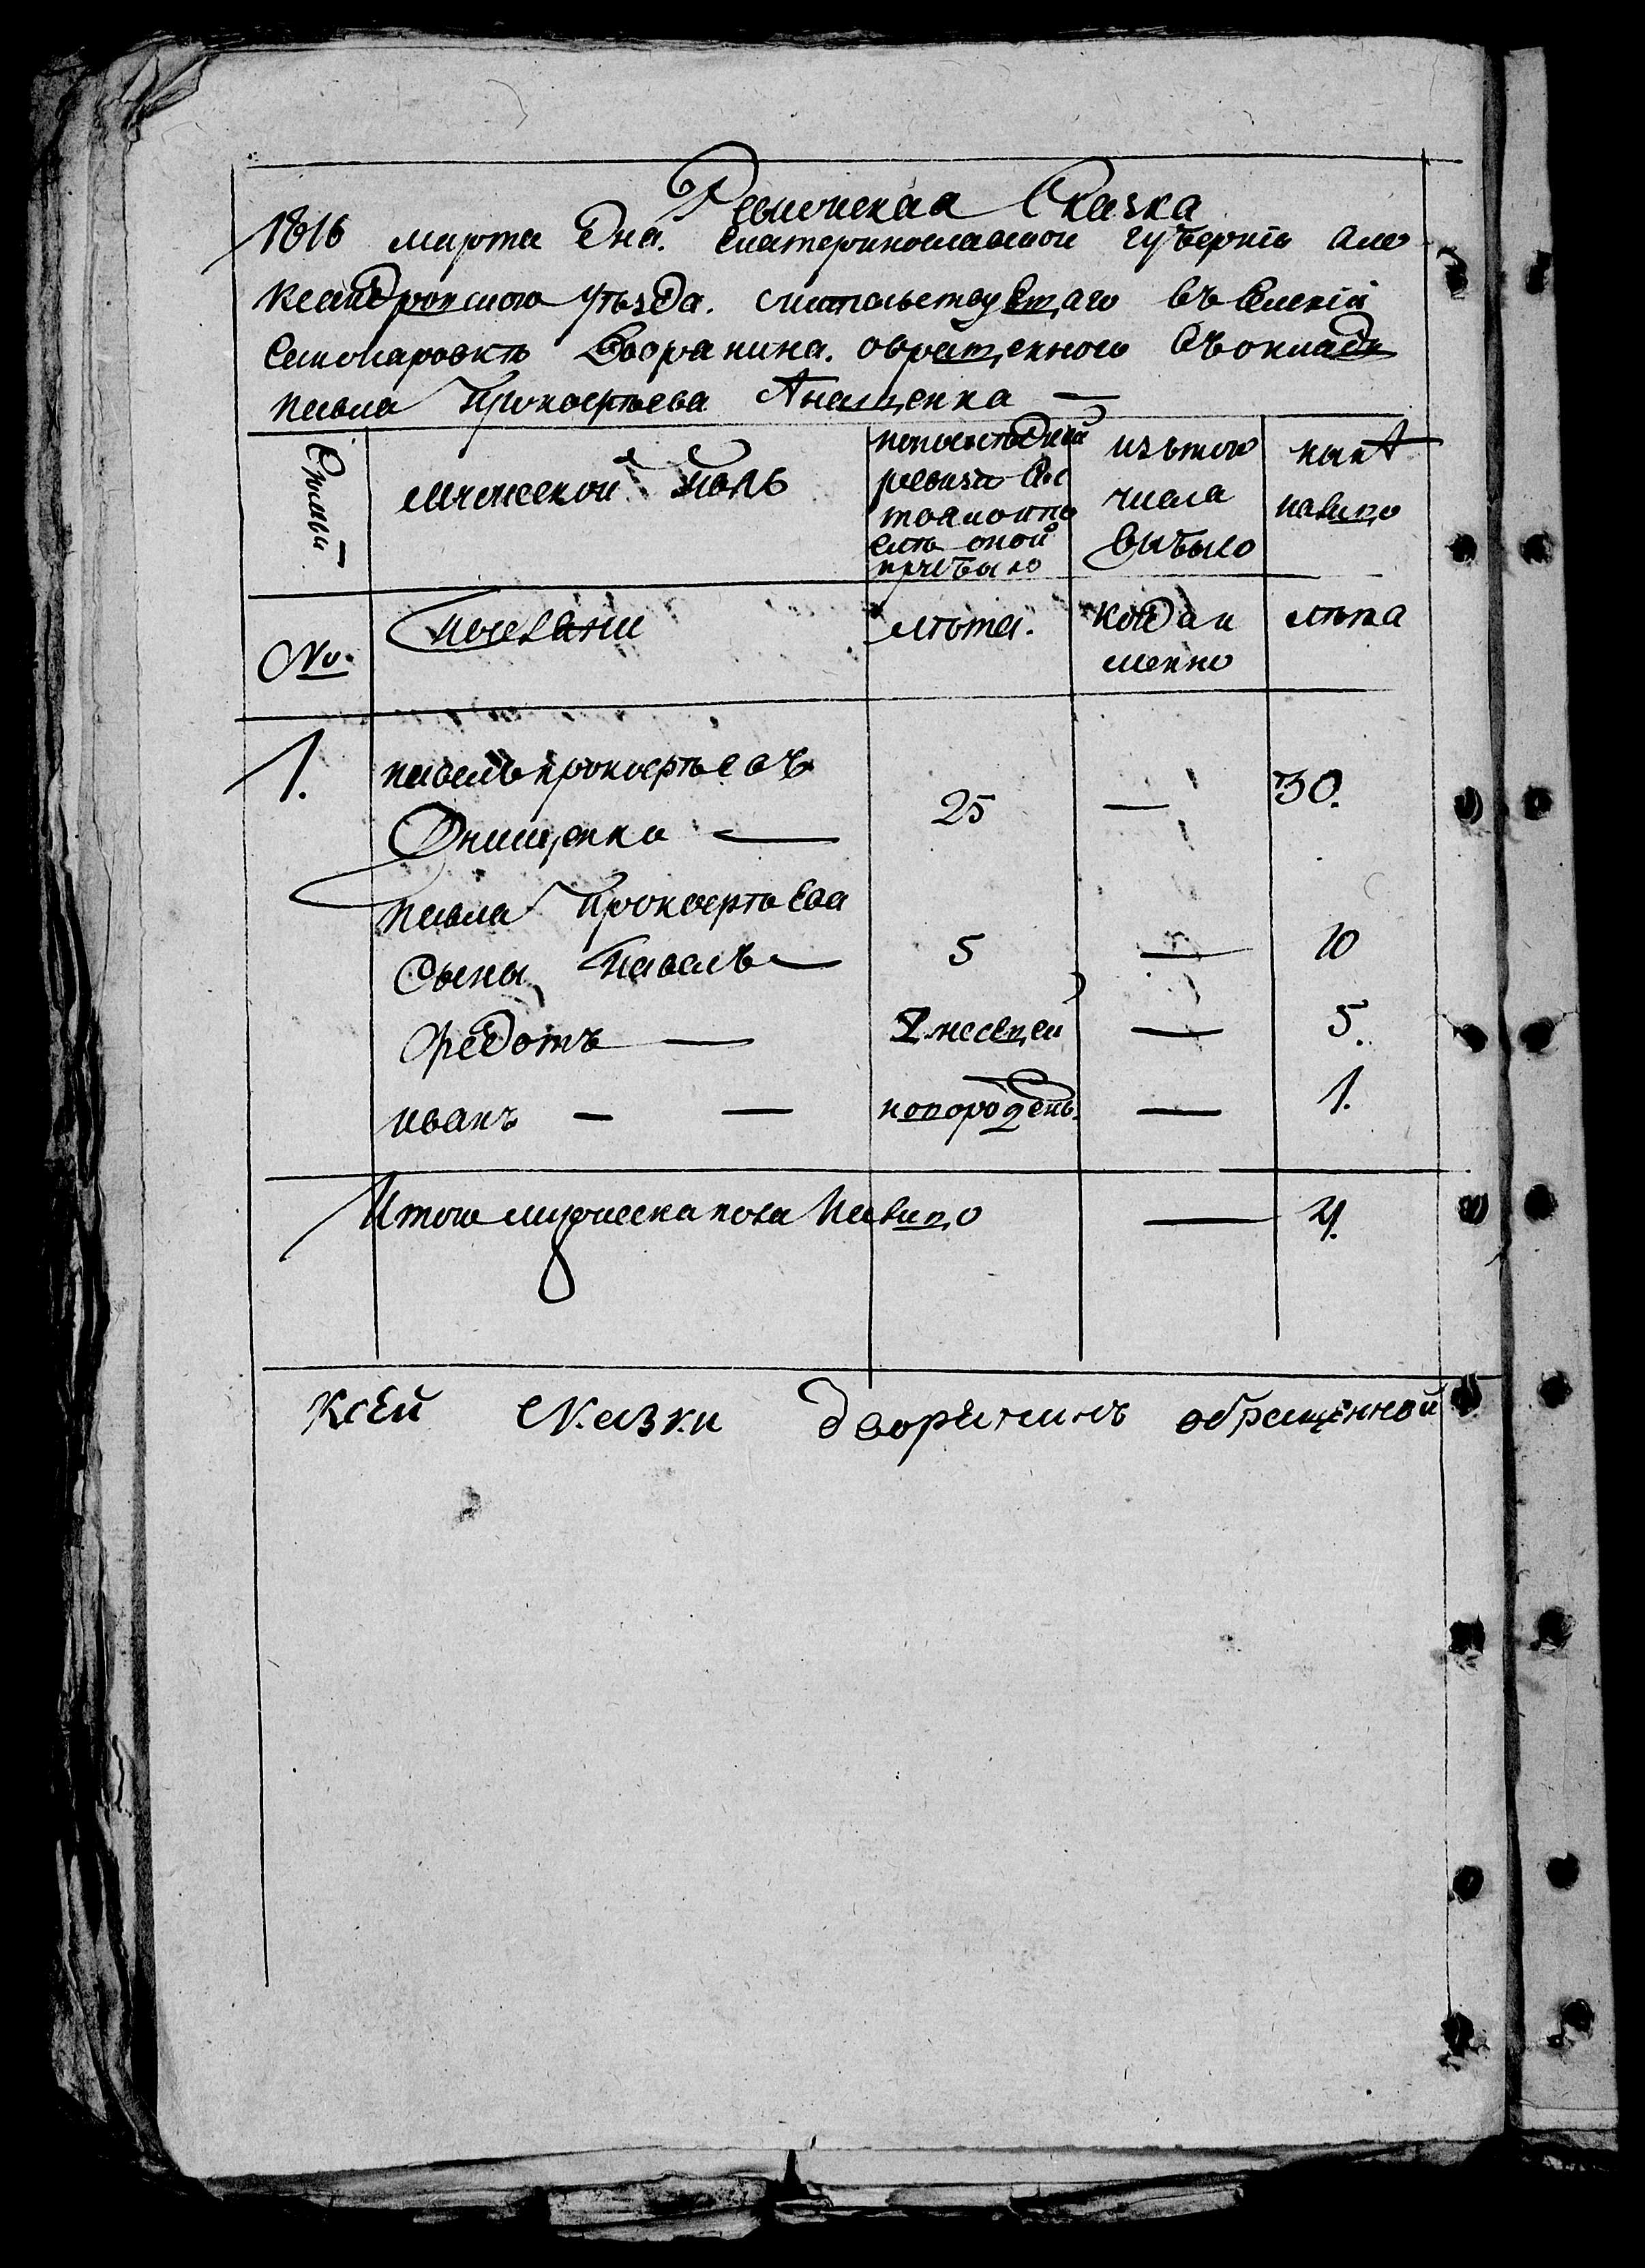 Ревизская Сказка
1816 марта дня. Екатеринославской губернiи але
ксандровского уѣзда. жительствующаго въ селенiи
Дворанина. обращенного въ окладъ
павла Прокофьева Анищенка —
Фамилiи
мужеской полъ
по последней
ревизiи со
стояло и по
слѣ оной
прибыло
изътого
числа
выбыло
нынѣ
налицо
№
лѣта.
когда и
менно
лѣта
1.
павелъ прокофьевъ
Онищенко —
25
—
30.
павла Прокофьева
Сыны Павелъ —
5
—
10
Федотъ —
2 месецеи
—
5.
иванъ — —
новорожденъ.
—
1.
Итого мужеска пола налицо
—
4.
Ксей сказки дворянинъ обращенной